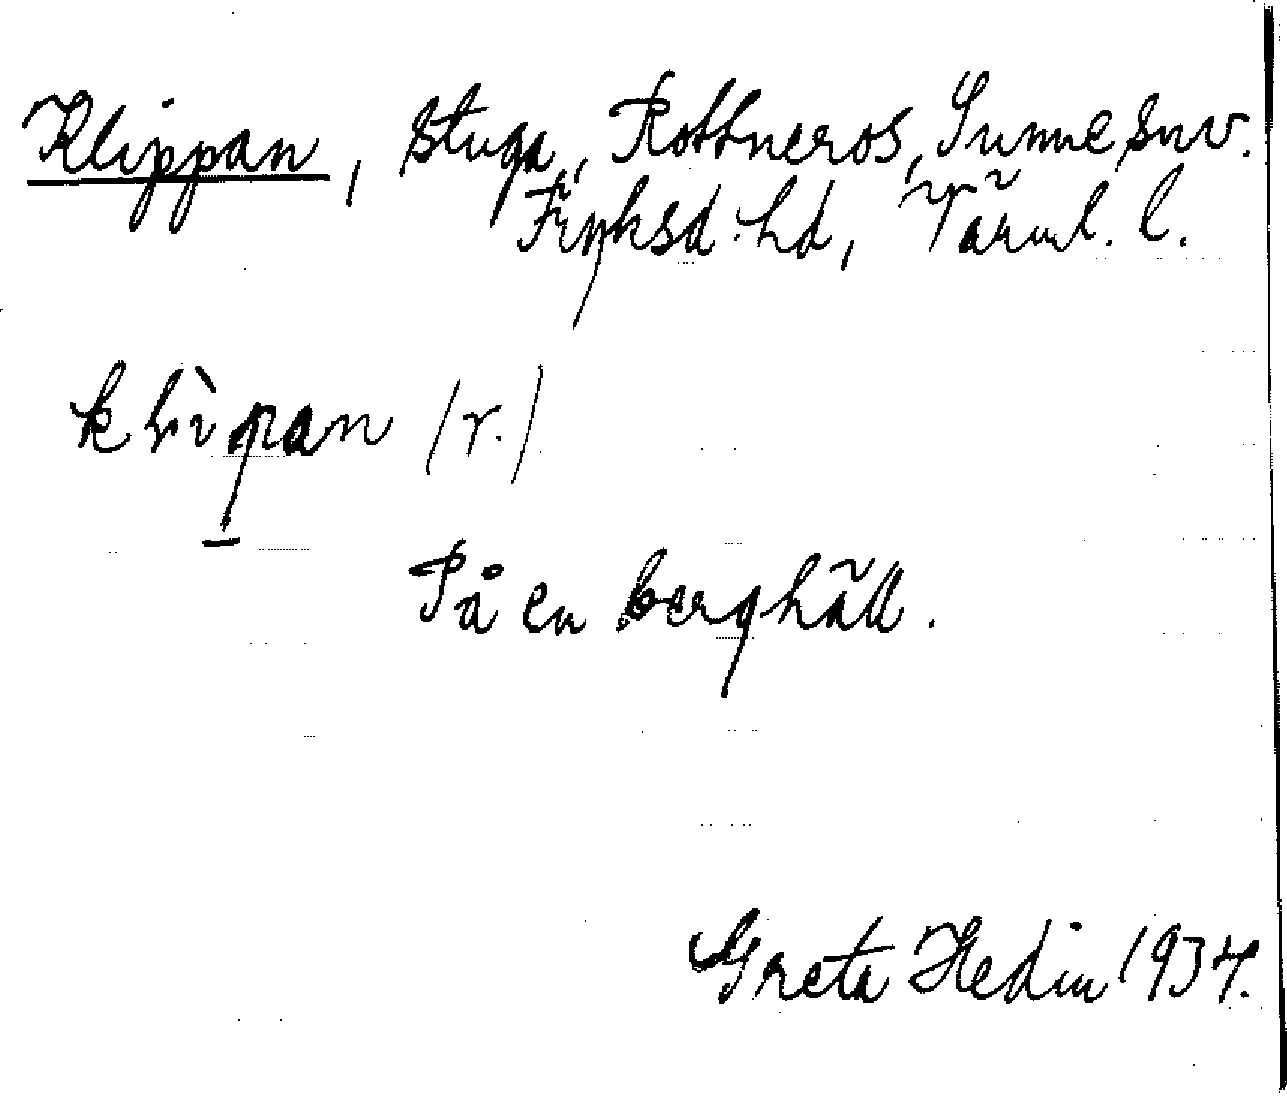 Klippan, stuga, Rottneros, Sunne snv.
Fryksd. hd, Värml. l.
klìpan (r.)
På en berghäll.
Greta Hedin 1934.